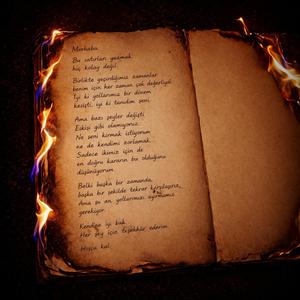 Merhaba,
Bu satırları yazmak
hiç kolay değil.
Birlikte geçirdiğimiz zamanlar
benim için her zaman çok değerliydi.
İyi ki yollarımız bir dönem
kesişti, iyi ki tanıdım seni.
Ama bazı şeyler değişti.
Eskisi gibi olamıyoruz.
Ne seni kırmak istiyorum
ne de kendimi zorlamak.
Sadece ikimiz için de
en doğru kararın bu olduğunu
düşünüyorum.
Belki başka bir zamanda,
başka bir şekilde tekrar karşılaşırız.
Ama şu an yollarımızı ayırmamız
gerekiyor.
Kendine iyi bak.
Her şey için teşekkür ederim.
Hoşça kal.